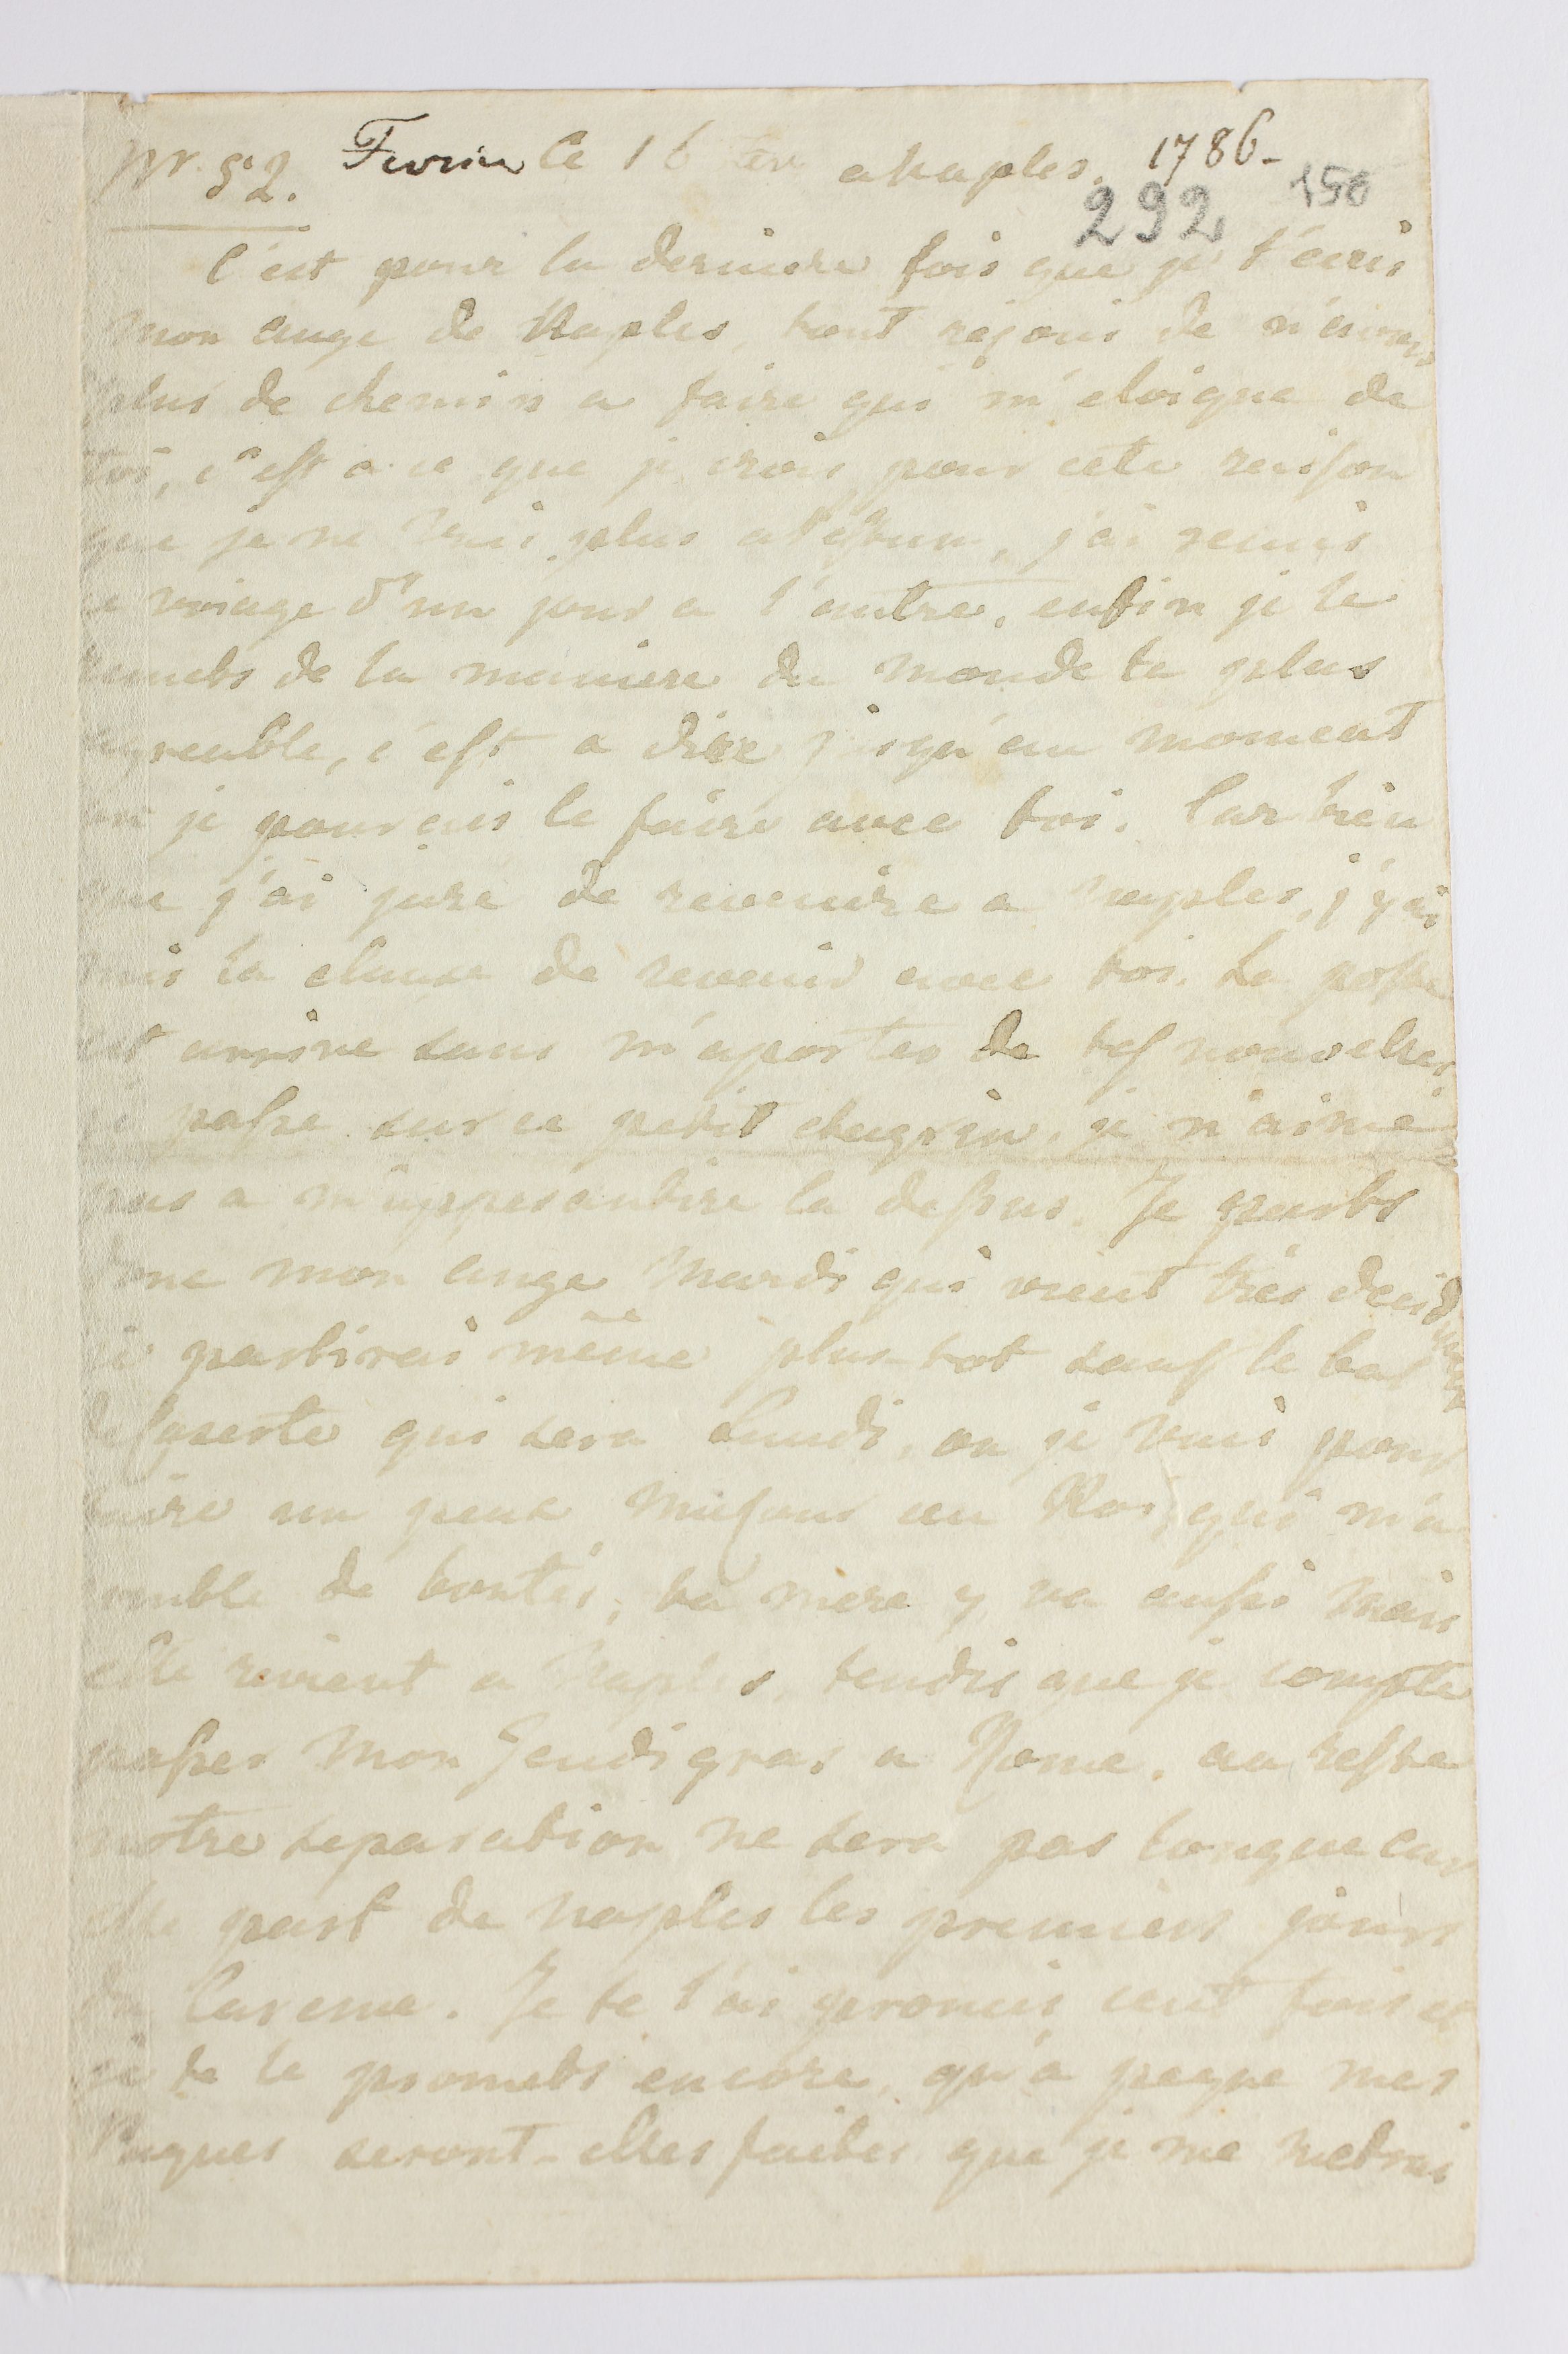 Nr. 52. Fevrier le 16 a Naples. 1786-
292 150
C'est pour la derniere fois que je t'ecris
mon ange de Naples, tout rejoui de n'avoir
plus de chemin a faire qui m'eloigne de
toi, c'est a ce que je crois pour cete raison
que je ne vais plus a Pestum, j'ai remis
ce voiage d'un jour a l'autre, enfin je le
remets de la maniere du monde la plus
agreable, c'est a dire jusqu'au moment
ou je pourais le faire avec toi. Car bien
que j'ai jure de revenire a Naples, j'y ai
mis la clause de revenir avec toi. La poste
est arrive sans m'aporter de tes nouvelles,
je passe sur ce petit chagrin, je n'aime
pas a m'appesantire la dessus. Je parts
donc mon ange Mardi qui vient tres decide
je partirai même plus-tot sauf le bal
qui sera Lundi, ou je vais pour
faire un peux ma cour au Roi, qui m'a
comble de bontés, ta mere y va aussi mais
elle revient a Naples, tandis que je compte
passer mon Jeudi gras a Rome. au reste
notre separation ne sera pas longue car
elle part de Naples les premiers jours
du Careme. Je te l'ai promis cent fois et
je te le promets encore, qu'a peine mes
Paques seront-elles faites que je me metrai